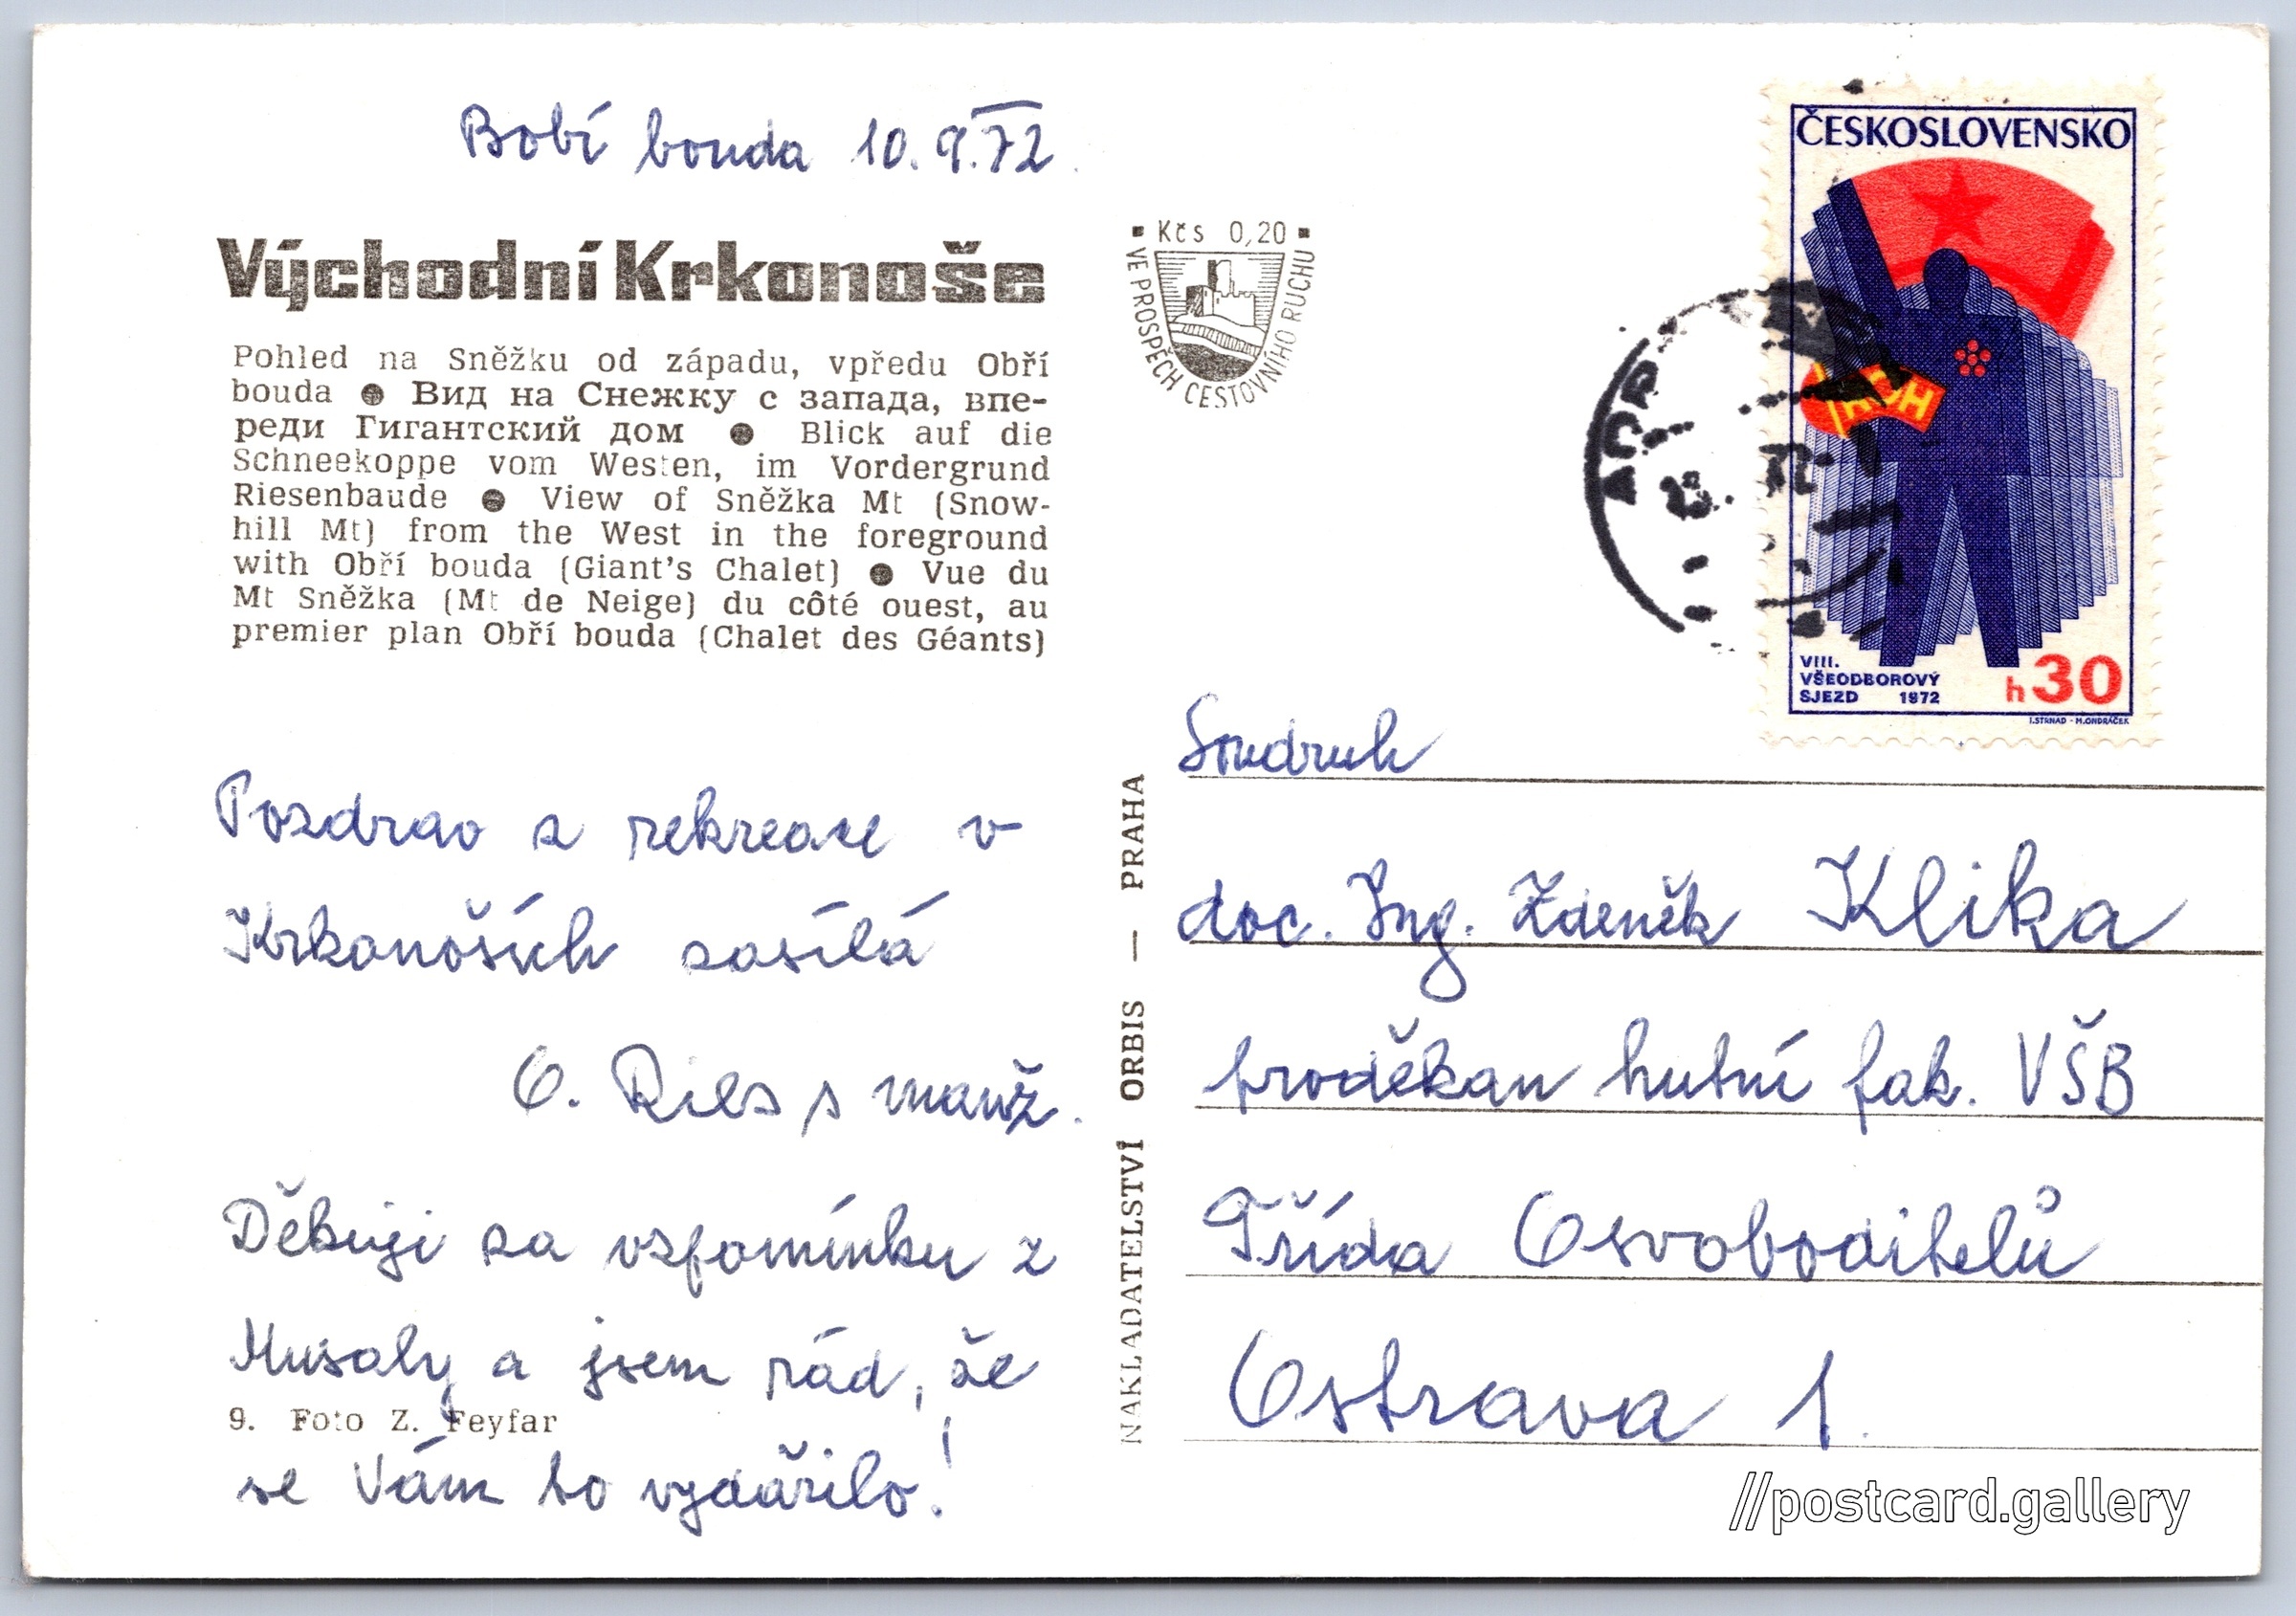 Bobí bouda 10.9.72
Východní Krkonoše
Pohled na Sněžku od západu, vpředu Obří
bouda ● Вид на Снежку с запада, впе-
реди Гигантский дом ● Blick auf die
Schneekoppe vom Westen, im Vordergrund
Riesenbaude ● View of Sněžka Mt (Snow-
hill Mt) from the West in the foreground
with Obří bouda (Giant's Chalet) ● Vue du
Mt Sněžka (Mt de Neige) du côté ouest, au
premier plan Obří bouda (Chalet des Géants)
Pozdrav z rekreace v
Krkonoších zasílá
O. s manž.
Děkuji za vzpomínku z
Musaly a jsem rád, že
9. Foto Z. Feyfar
se Vám to vydařilo!
Kčs 0,20
VE PROSPĚCH CESTOVNÍHO RUCHU
NAKLADATELSTVÍ ORBIS — PRAHA
ČESKOSLOVENSKO
ROH
VIII.
VŠEODBOROVÝ
SJEZD 1972
h 30
I. STRNAD - M. ONDRÁČEK
Soudruh
doc. Ing. Zdeněk Klika
proděkan hutní fak. VŠB
Třída Osvoboditelů
Ostrava 1.
//postcard.gallery